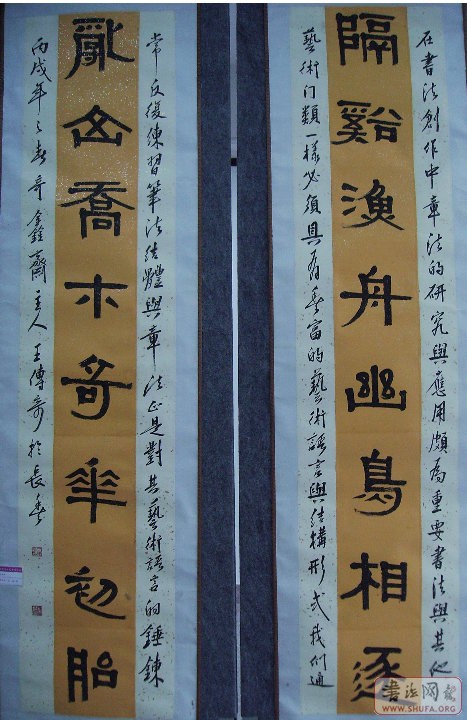 在書法創作中章法的研究與應用頗為重要書法與其他
隔谿漁舟幽鳥相逐
藝術门類一樣必須具有豐富的藝術語言與結構形式我们通
常反復練習筆法結體與章法正是對其藝術語言的錘鍊
亂山喬木奇華初胎
丙戌年之春奇鑫齋主人王傳奇於長春
書法网
WWW.SHUFA.ORG